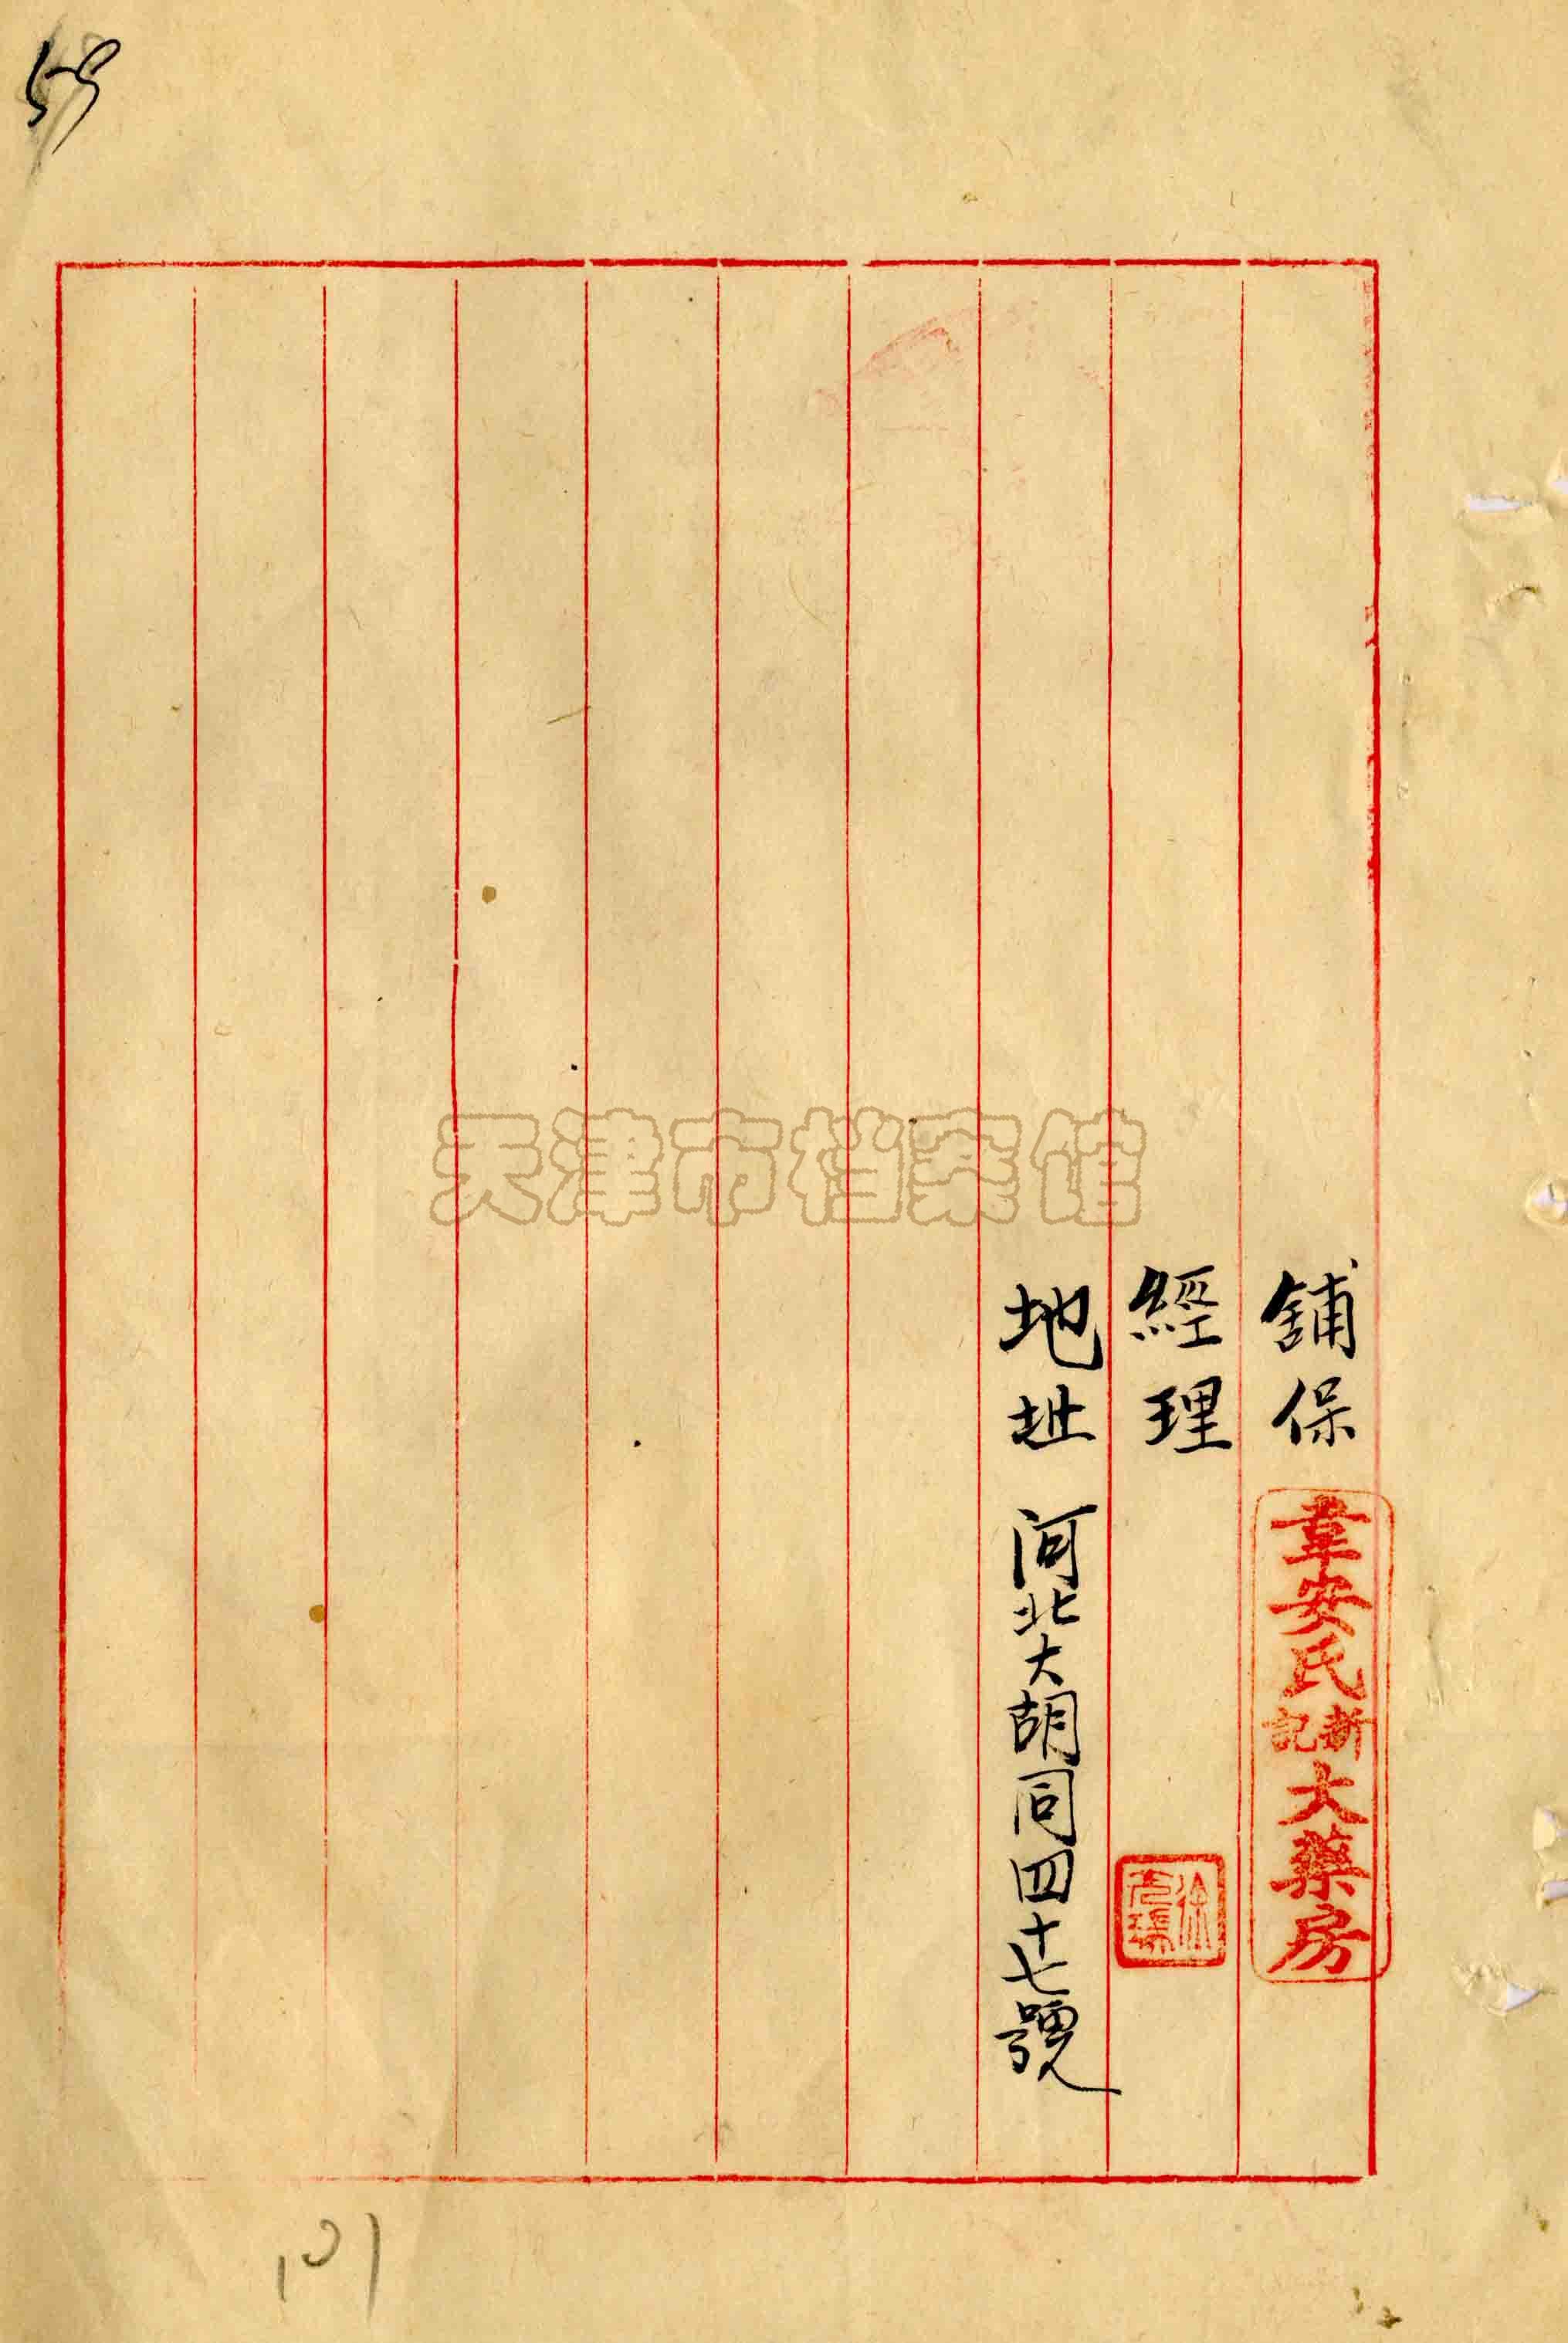 59
舖保 韋安氏新記大藥房
經理 徐
地址 河北大胡同四十七號
天津市档案馆
101